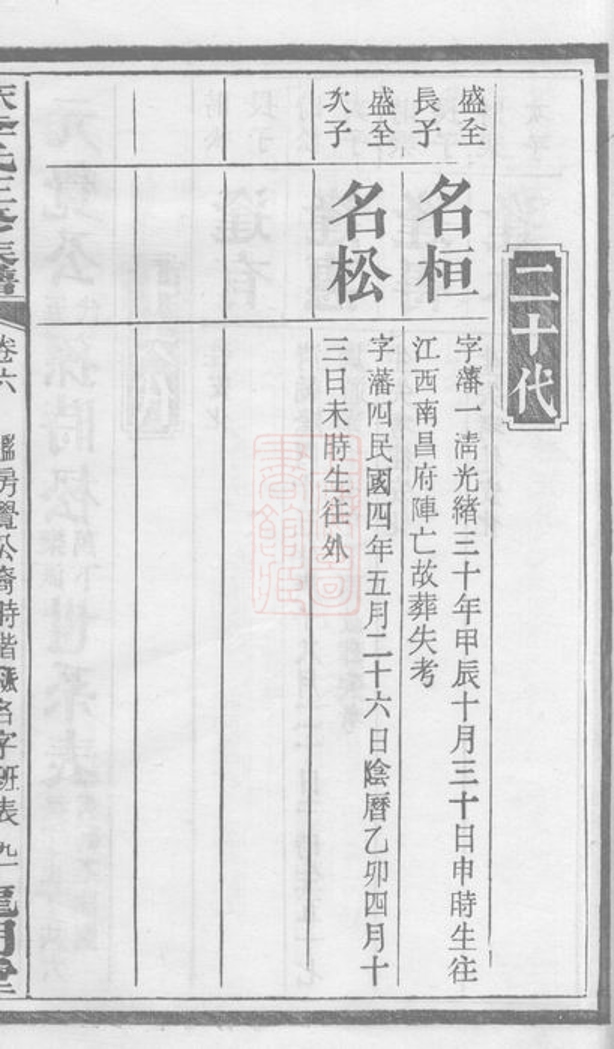 二十代
盛全
長子
名桓
字藩一淸光緖三十年甲辰十月三十日申時生往
江西南昌府陣亡故葬失考
盛全
次子
名松
字藩四民國四年五月二十六日陰曆乙卯四月十
三日未時生往外
卷六
房覺公裔時
名字班表